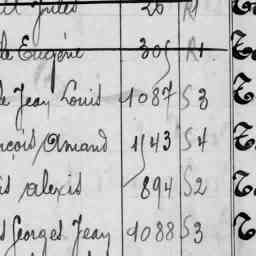 Jules 26 R1
le Eugène 305 R1
e Jean Louis 1087 S3
nçois Amand 1143 S4
is alexis 894 S2
s Georges Jean 1088 S3